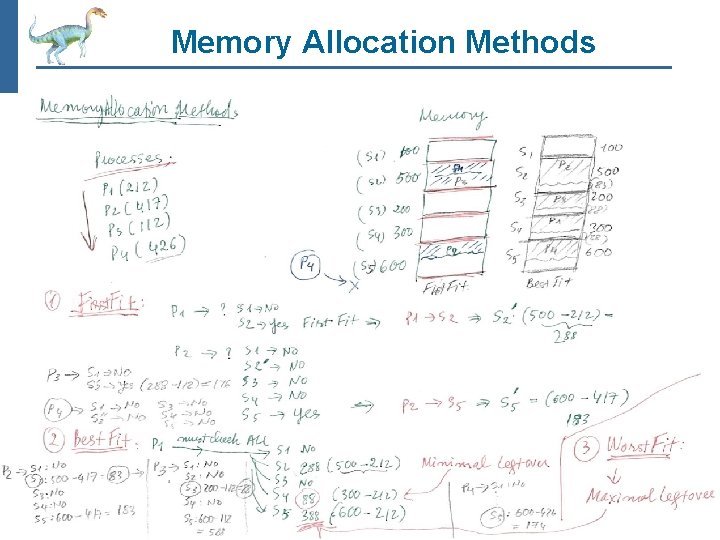 Memory Allocation Methods
Memory Allocation Methods
Processes:
P1 (212)
P2 (417)
P3 (112)
P4 (426)
Memory
(S1) 100
(S2) 500
P1
P3
(S3) 200
(S4) 300
P2
(S5) 600
P4 → X
First Fit
S1 100
S2 P2 500
(83)
S3 P3 200
(88)
S4 P1 300
(88)
S5 P4 600
Best Fit
① First Fit:
P1 → ? S1 → No
S2 → yes First Fit ⇒ P1 → S2 ⇒ S2': (500-212) =
288
P2 → ? S1 → No
S2' → No
S3 → No
S4 → No
S5 → Yes
⇒ P2 → S5 ⇒ S5' = (600-417)
183
P3 → S1 → No
S2' → yes (288-112) = 176
P4 → S1 → No
S2 → No
S3 → No
S4 → No
S5 → No
② Best Fit: P1 must check ALL
S1 No
S2 288 (500-212)
S3 No
S4 88 (300-212)
S5 388 (600-212)
Minimal leftover
P2 → S1: No
S2: 500-417=83
S3: No
S4: No
S5: 600-417 = 183
P3 → S1: No
S2: No
S3: 200-112=88
S4: No
S5: 600-112
= 588
P4 → ? S1: No
S5: 600-426
= 174
③ Worst Fit:
Maximal leftover